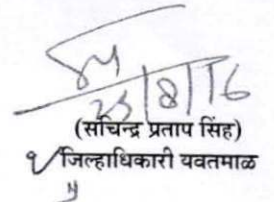 25/8/16
(सचिन्द्र प्रताप सिंह)
जिल्हाधिकारी यवतमाळ